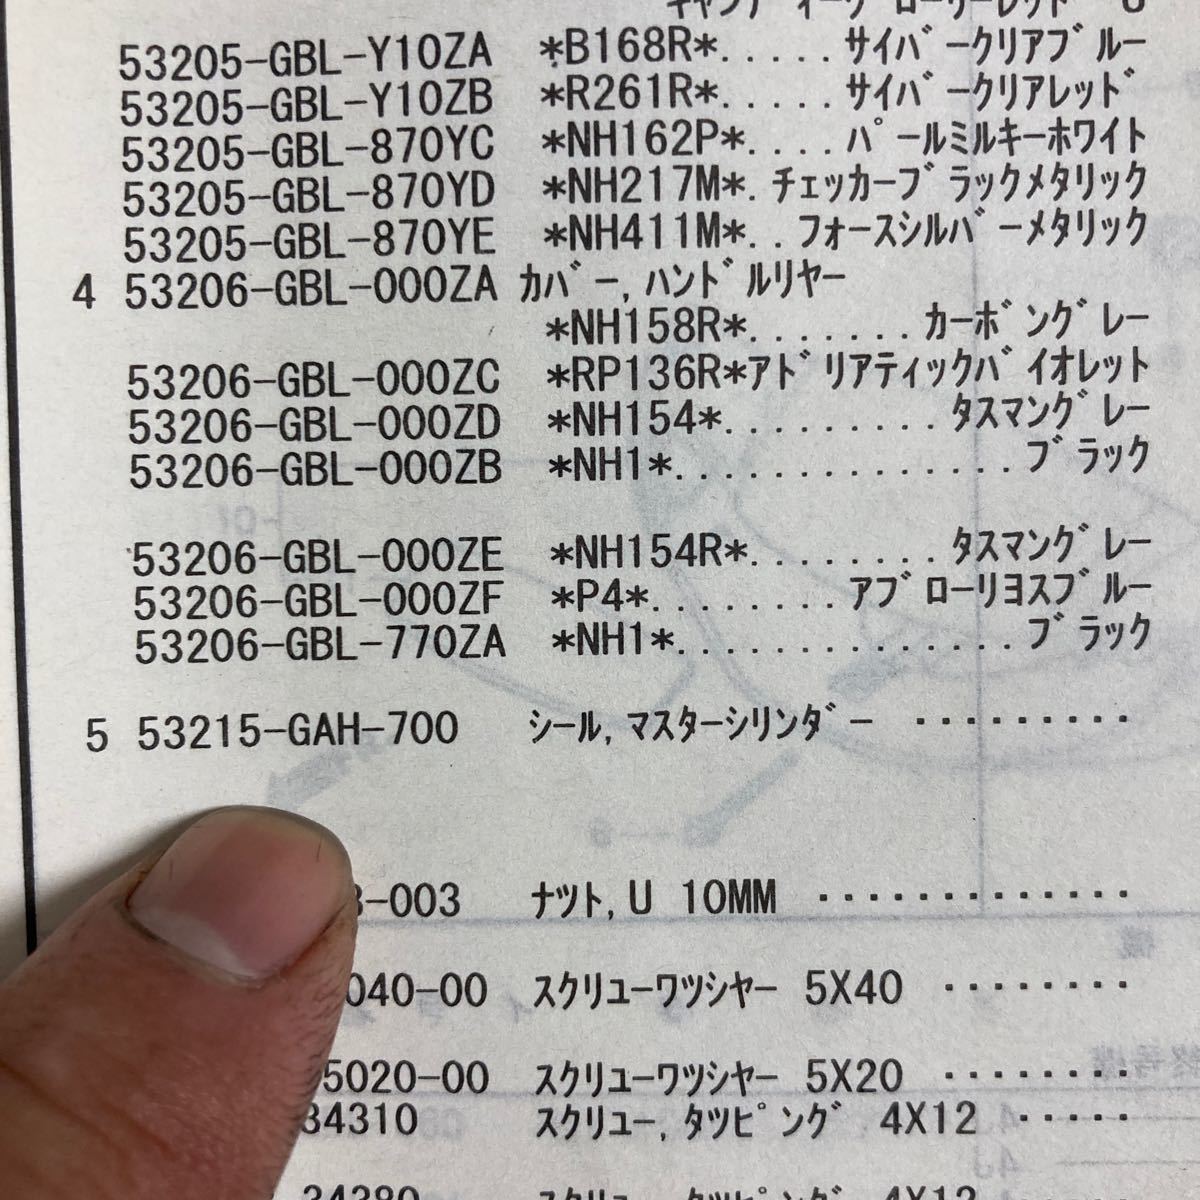 53205-GBL-Y10ZA *B168R*..... サイバークリアブルー
53205-GBL-Y10ZB *R261R*...... サイバークリアレッド
53205-GBL-870YC *NH162P*.... パールミルキーホワイト
53205-GBL-870YD *NH217M*. チェッカーブラックメタリック
53205-GBL-870YE *NH411M*.. フォースシルバーメタリック
4 53206-GBL-000ZA カバー,ハンドルリヤー
*NH158R*........ カーボングレー
53206-GBL-000ZC *RP136R*アドリアティックバイオレット
53206-GBL-000ZD *NH154*.......... タスマングレー
53206-GBL-000ZB *NH1*............... ブラック
53206-GBL-000ZE *NH154R*......... タスマングレー
53206-GBL-000ZF *P4*......... アブローリヨスブルー
53206-GBL-770ZA *NH1*............... ブラック
5 53215-GAH-700 シール,マスターシリンダー .........
-003 ナツト,U 10MM .............
040-00 スクリユーワツシヤー 5X40 ........
5020-00 スクリユーワツシヤー 5X20 ........
34310 スクリユー,タツピング 4X12 .....
34380 スクリユー,タツピング 4X12